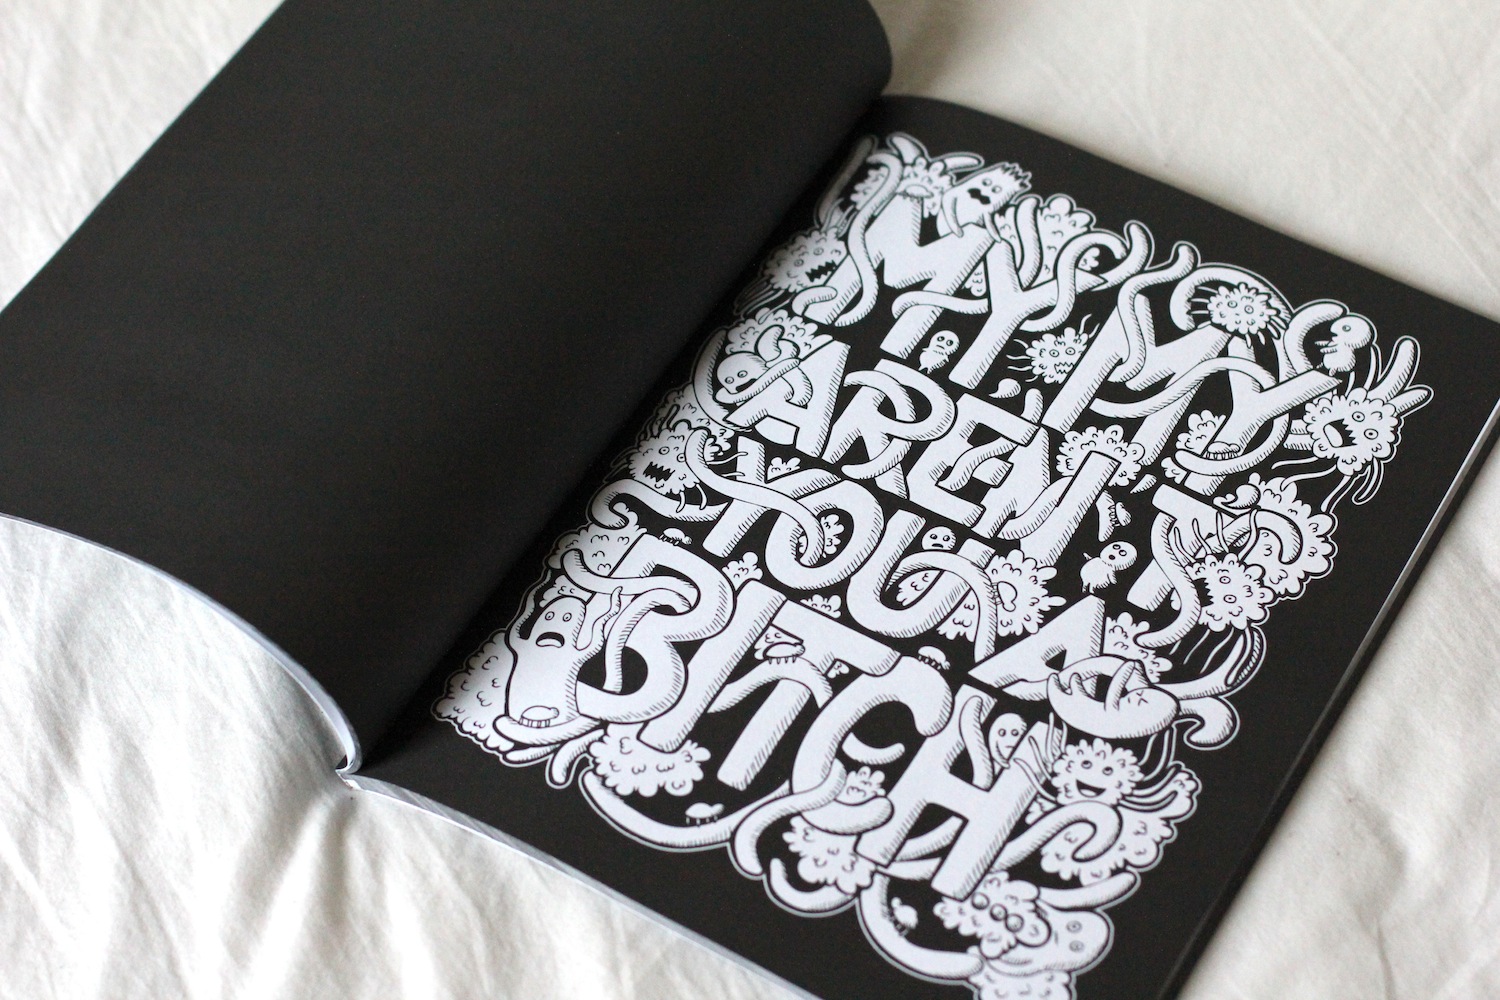 MY MY
AREN'T
YOU A
BITCH